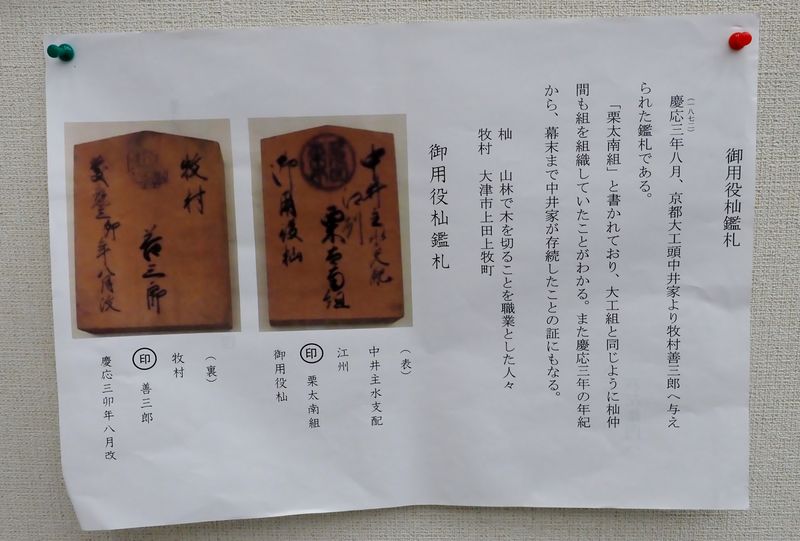 御用役杣鑑札
慶応三年八月、京都大工頭中井家より牧村善三郎へ与え
(一八七二)
られた鑑札である。
「栗太南組」と書かれており、大工組と同じように杣仲
間も組を組織していたことがわかる。また慶応三年の年紀
から、幕末まで中井家が存続したことの証にもなる。
杣 山林で木を切ることを職業とした人々
牧村 大津市上田上牧町
御用役杣鑑札
中井主水支配
江州
栗太南組
御用役杣
牧村
善三郎
慶応三卯年八月改
(表)
中井主水支配
江州
印 栗太南組
御用役杣
(裏)
牧村
印 善三郎
慶応三卯年八月改